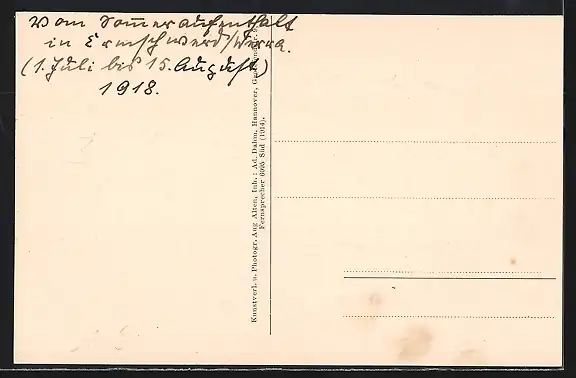 Vom Sommeraufenthalt
in Ermschwerd/Werra.
(1. Juli bis 15. August)
1918.
Kunstverl. u. Photogr. Aug Alten, Inh.: Ad. Dahm, Hannover,
Fernsprecher 6095 Süd (1914).